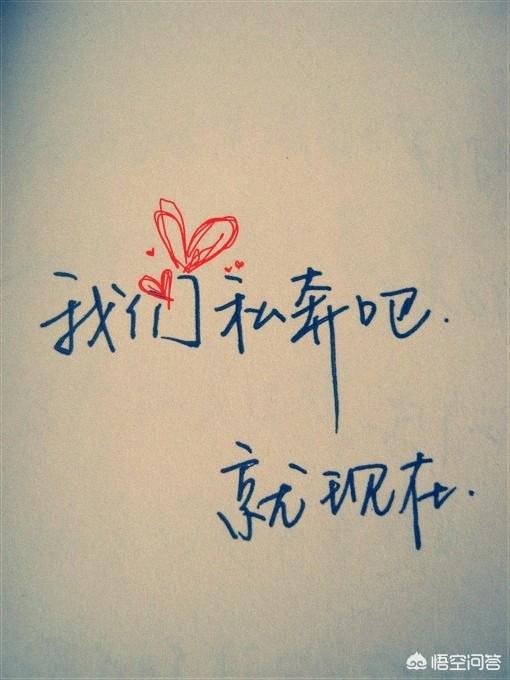 我们私奔吧.
就现在.
悟空问答